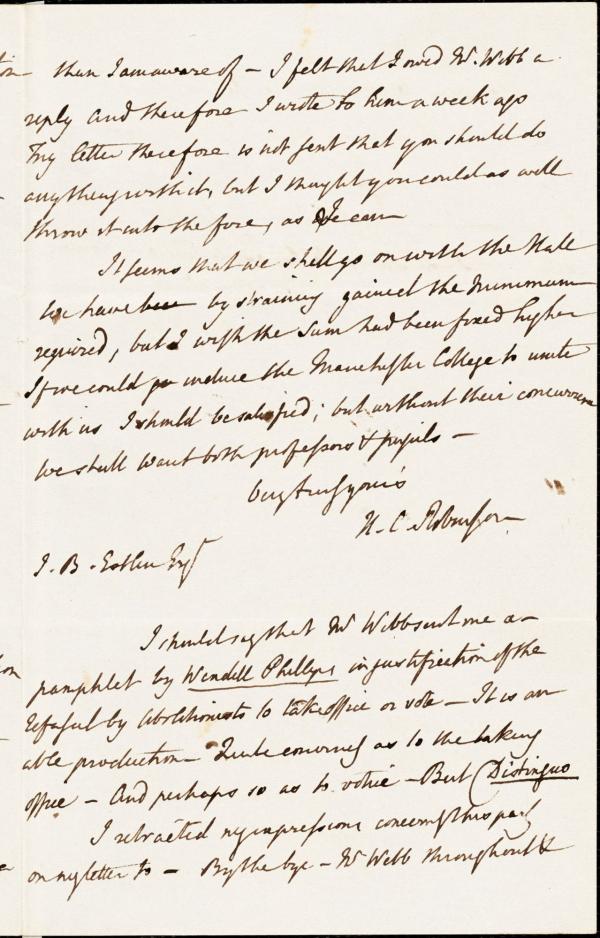 than I am aware of – I felt that I owed Mr. Webb a
reply and therefore I wrote to him a week ago
My letter therefore is not sent that you should do
anything with it, but I thought you could as well
throw it into the fire, as I can
It seems that we shall go on with the Hall
We have by straining gained the minimum
required, but I wish the sum had been fixed higher
If we could induce the Manchester College to unite
with us I should be satisfied; but without their concurrence
we shall want both professors & pupils –
Very truly yours
H. C. Robinson
J. B. Estlin Esqr
I should say that Mr Webb sent me a
pamphlet by Wendell Phillips in justification of the
refusal by Abolitionists to take office or vote – It is an
able production – Quite convincing as to the taking
office – And perhaps so as to voting – But (Distinguo
I retracted my impressions concerning this
on my letter to – By the bye – Mr Webb throughout